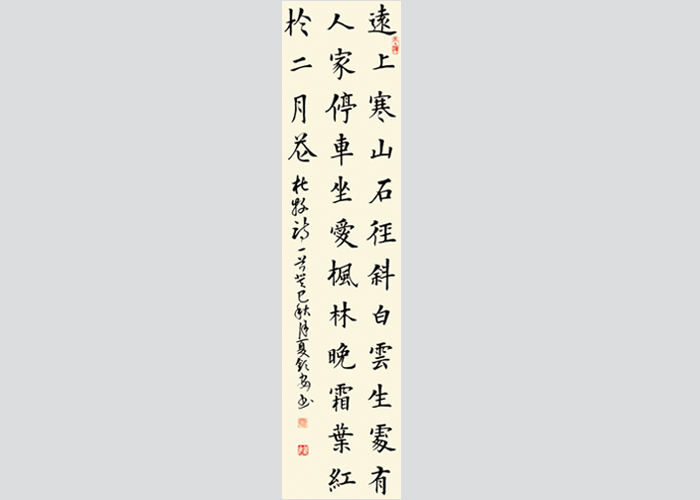 遠上寒山石徑斜白雲生處有
人家停車坐愛楓林晚霜葉紅
於二月花
杜牧詩一首癸巳秋月夏